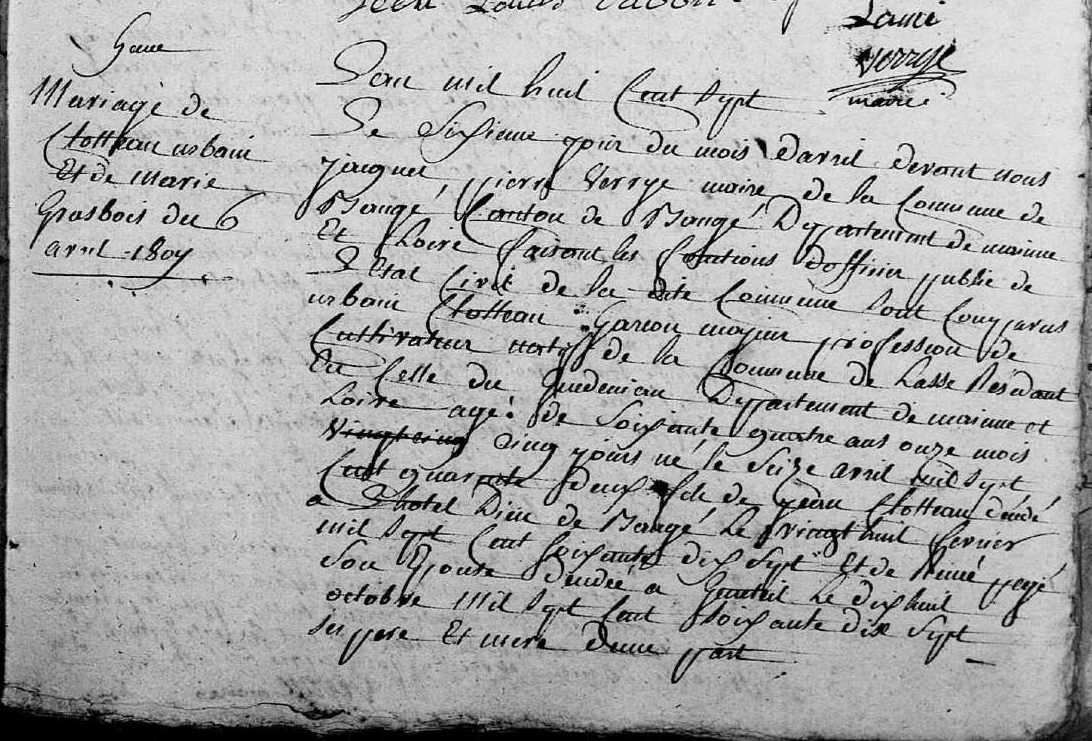 Jean Louis
Lami
Verrye
maire
Mariage de
Clotteau urbain
Et de marie
Grosbois du 6
avril 1807
L'an mil huit Cent Sept
Le Sixieme jour du mois d'avril devant nous
jaques pierre Verrye maire de la Commune de
Baugé Canton de Baugé Departement de mainne
Et Loire faisant les fonctions d'officier publié de
L'Etat Civil de la dite Commune Sont Comparus
urbain Clotteau Garcon majeur profession de
Cultivateur natif de la Commune de Lasse Residant
En Celle du Guedeniau Departement de mainne et
Loire agé de Soixante quatre ans onze mois
vingt cinq Cinq jours né le Seize avril mil Sept
Cent quarante deux fils de jean Clotteau décédé
a L'hotel Dieu de Baugé Le vingt huit fevrier
mil Sept Cent Soixante dix Sept Et de Reiné pagé
Son Epouse décédée a Le dix huit
octobre mil Sept Cent Soixante dix Sept
Ses pere Et mere d'une part